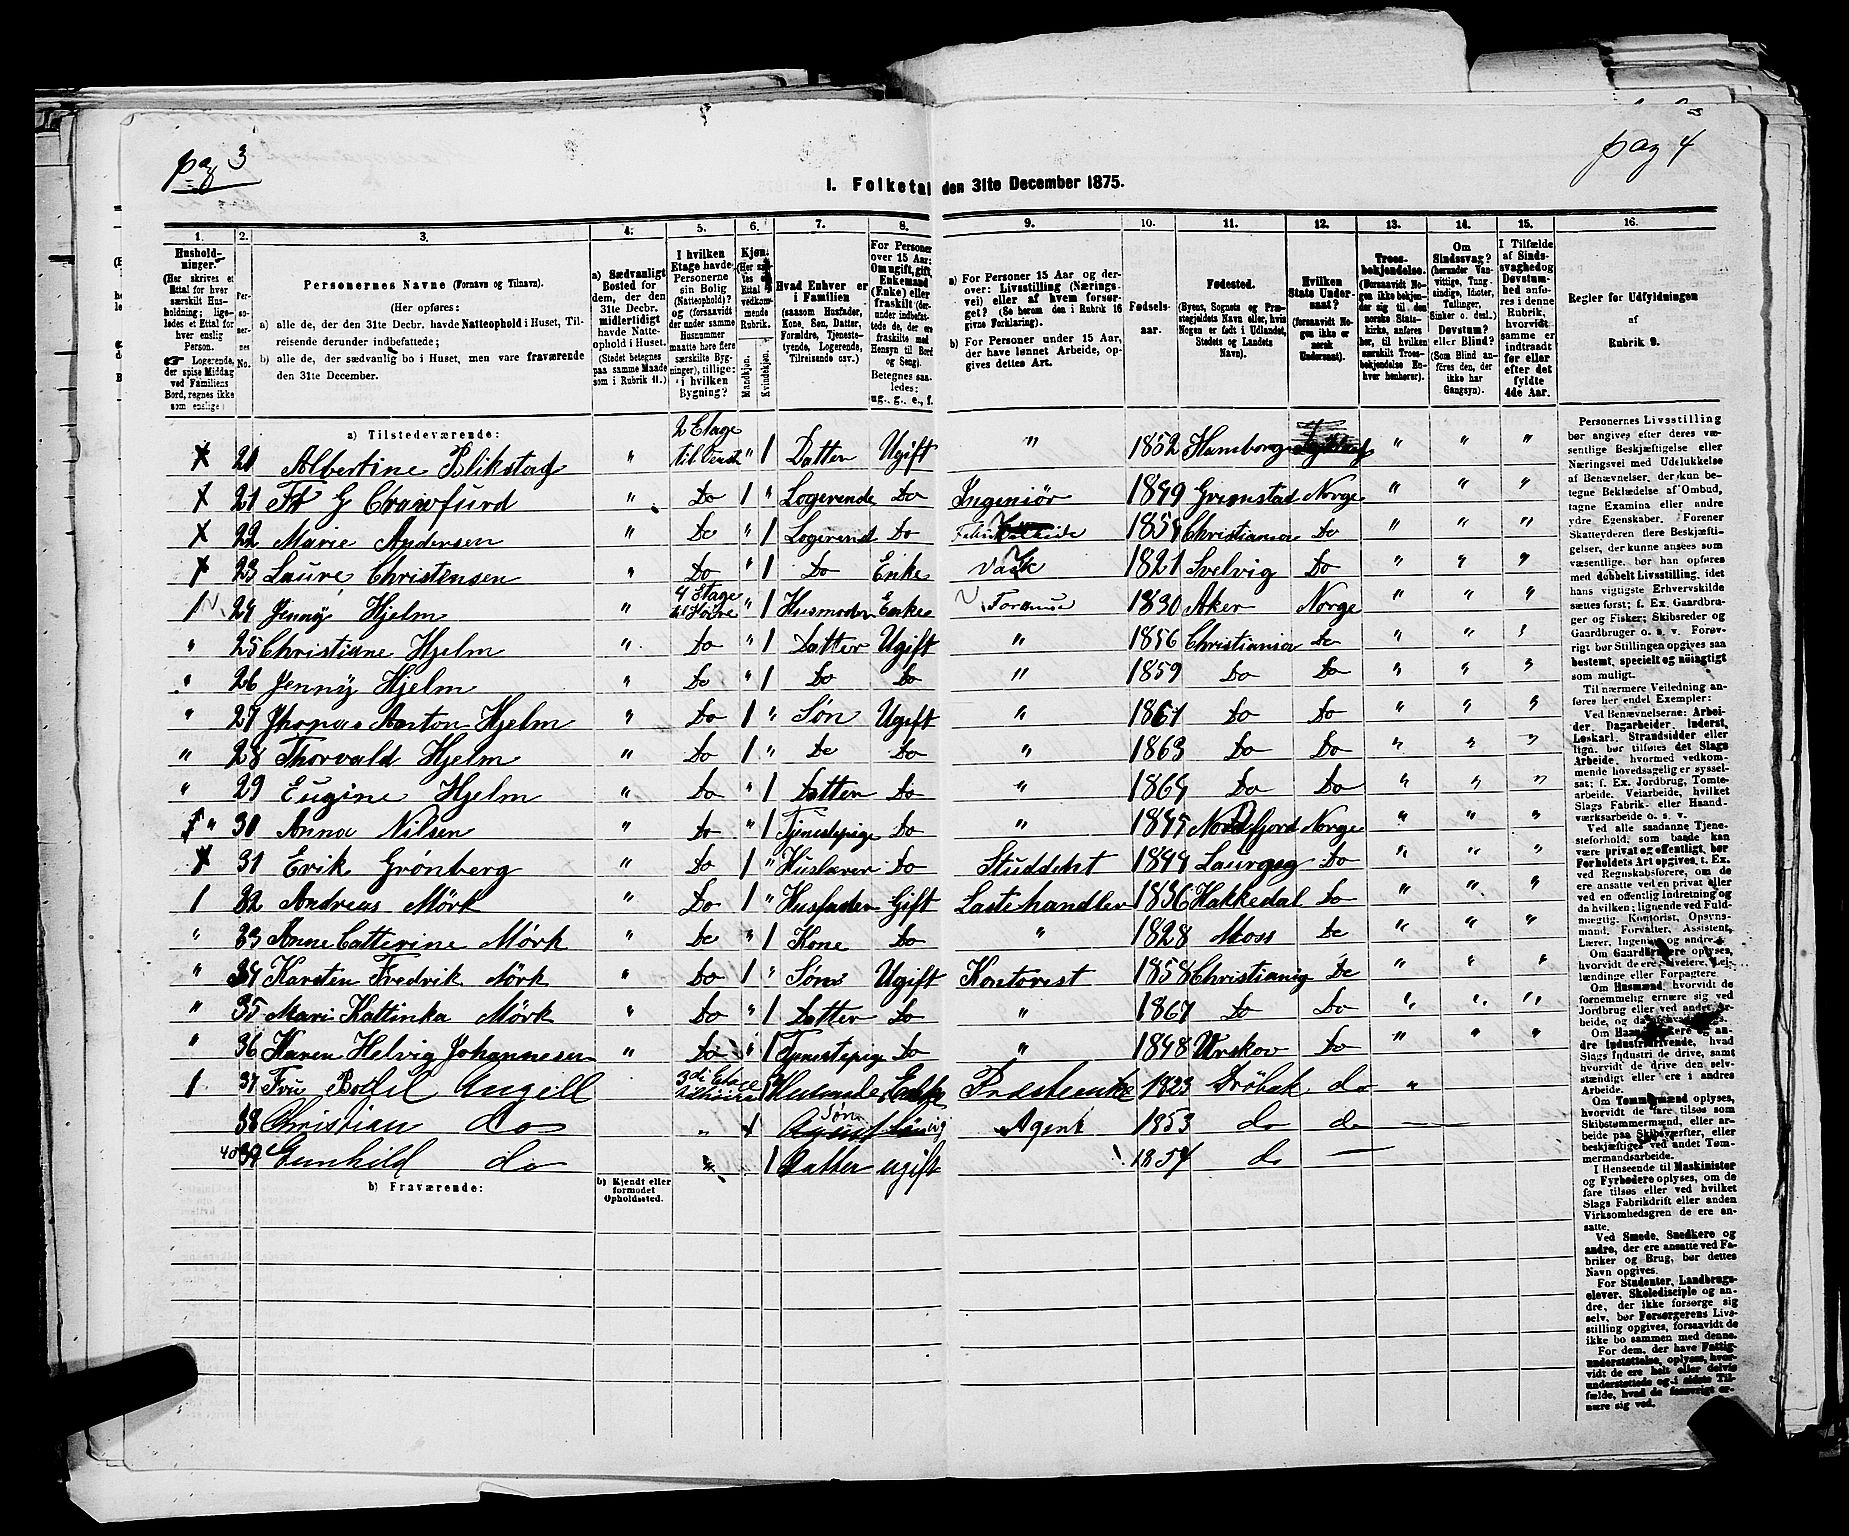 pag 3
pag 4
I. Folketal den 31te December 1875.
1. 2. 3. 4. 5. 6. 7. 8. 9. 10. 11. 12. 13. 14. 15. 16.
Husholdninger. (Her skrives et Ettal for hver særskilt Husholdning; ligeledes et Ettal for hver enslig Person. Logerende, der spise Middag ved Familiens Bord, regnes ikke som enslige)
Personernes No.
Personernes Navne (Fornavn og Tilnavn).
(Her opføres:
a) alle de, der den 31te Decbr. havde Natteophold i Huset, Tilreisende derunder indbefattede;
b) alle de, der sædvanlig bo i Huset, men vare fraværende den 31te December.
a) Sædvanligt Bosted for dem, der den 31te Decbr. midlertidigt havde Natteophold i Huset. (Stedet betegnes paa samme Maade som i Rubrik 11.)
I hvilken Etage havde Personerne sin Bolig (Natteophold)? og (forsaavidt der under samme Husnummer maatte høre flere særskilte Bygninger), tillige: i hvilken Bygning?
Kjøn. (Her sættes Ettal i vedkommende Rubrik. Mandkjøn. Kvindekjøn.
Hvad Enhver er i Familien (saasom Husfader, Kone, Søn, Datter, Forældre, Tjenestetyende, Logerende, Tilreisende osv.)
For Personer over 15 Aar: Om ugift, gift, Enkemand (Enke) eller fraskilt (derunder indbefattede de, der ere fraskilte med Hensyn til Bord og Seng). Betegnes saaledes: ug., g., e., f.
a) For Personer 15 Aar og derover: Livsstilling (Næringsvei) eller af hvem forsørget? (Se herom den i Rubrik 16 givne Forklaring).
b) For Personer under 15 Aar, der have lønnet Arbeide, opgives dettes Art.
Fødselsaar.
Fødested. (Byens, Sognets og Præstegjeldets Navn eller, hvis Nogen er født i Udlandet, Stedets og Landets Navn).
Hvilken Stats Undersaat? (forsaavidt Nogen ikke er norsk Undersaat).
Troesbekjendelse. (Forsaavidt Nogen ikke bekjender sig til den norske Statskirke, anføres her, til hvilken særskilt Troesbekjendelse Enhver henhører).
Om Sindssvag? (herunder Vanvittige, Tungsindige, Idioter, Tullinger, Sinker o. desl.) Døvstum? eller Blind? (Som Blind anføres den, der ikke har Gangsyn).
I Tilfælde af Sindssvaghed og Døvstumhed anføres i denne Rubrik, hvorvidt samme er indtraadt før eller efter det fyldte 4de Aar.
Regler for Udfyldningen af Rubrik 9.
a) Tilstedeværende:
20 Albertine Blikstad " 2 Etage til Venst " 1 Datter Ugift " 1852 Hamborg " " "
21 Fr G Crawfurd " Do 1 " Logerende Do Ingeniør 1849 Grimstad Norge " " "
22 Marie Andersen " Do " 1 Logerend Do 1854 Christiania Do " " "
23 Laure Christensen " Do " 1 Do Enke Vask 1821 Svelvig Do " " "
1 24 Jenny Hjelm " 4 Etage til Høire " 1 Husmoder Enke Formue 1830 Aker Norge " " "
" 25 Christiane Hjelm " Do " 1 Datter Ugift " 1856 Christiania Do " " "
" 26 Jenny Hjelm " Do " 1 Do Do " 1859 Do Do " " "
" 27 Thomas Anton Hjelm " Do 1 " Søn Ugift " 1861 Do Do " " "
" 28 Thorvald Hjelm " Do 1 " Do Do " 1863 Do Do " " "
" 29 Eugine Hjelm " Do " 1 Datter Do " 1864 Do Do " " "
" 30 Anna Nilsen " Do " 1 Tjenestepige Do " 1845 Nordfjord Norge " " "
31 Erik Grønberg " Do 1 " Huslærer Do Studdent 1849 Laurgeg Do " " "
1 32 Andreas Mörk " Do 1 " Husfader Gift Lastehandler 1836 Hakkedal Do " " "
" 33 Anne Catterine Mörk " Do " 1 Kone Do " 1828 Moss Do " " "
" 34 Karsten Fredrik Mörk " Do 1 " Søn Ugift Kontorist 1858 Christiania Do " " "
" 35 Mari Kattinka Mörk " Do " 1 Datter Do " 1867 Do Do " " "
" 36 Karen Helvig Johannesen " Do " 1 Tjenestepige Do " 1848 Urskov Do " " "
1 37 Fru Angell 3di Etage Enke Præsteenke 1823 Drøbak do "
38 Christian do " 1 Søn Agent 1853 do do
39 Gunhild do " 1 Datter ugift 1854 do
b) Fraværende:
b) Kjendt eller formodet Opholdssted.
Personernes Livsstilling bør angives efter deres væsentlige Beskjæftigelse eller Næringsvei med Udelukkelse af Benævnelser, der kun betegne Beklædelse af Ombud, tagne Examina eller andre ydre Egenskaber. Forener Skatteyderen flere Beskjæftigelser, der kunne ansees som væsentlige, bør han opføres med dobbelt Livsstilling, idet hans vigtigste Erhvervskilde sættes først; f. Ex. Gaardbruger og Fisker; Skibsreder og Gaardbruger o. s. v. Forøvrigt bør Stillingen opgives saa bestemt, specielt og nøiagtigt som muligt.
Til nærmere Veiledning anføres her endel Exempler:
Ved Benævnelserne: Arbeider, Dagarbeider, Inderst, Løskarl, Strandsidder eller lign. bør tilføies det Slags Arbeide, hvormed vedkommende hovedsagelig er sysselsat; f. Ex. Jordbrug, Tomtearbeide, Veiarbeide, hvilket Slags Fabrik- eller Haandværksarbeide o. s. v.
Ved alle saadanne Tjenesteforhold, som baade kan være private og offentligt, bør Forholdets Art opgives, t. Ex. ved Regnskabsførere, om de ere ansatte ved en privat eller ved en offentlig Indretning og da hvilken; lignende ved Fuldmægtig, Kontorist, Opsynsmand, Forvalter, Assistent, Lærer, Ingeniør og andre.
Om Gaardbrugere oplyses, hvorvidt de ere Selveiere, Leilændinge eller Forpagtere
Om Husmænd, hvorvidt de fornemmelig ernære sig ved Jordbrug eller ved andet Arbeide, og da
Om Haandværkere og andre Industridrivende, hvad Slags Industri de drive, samt hvorvidt de drive den selvstændigt eller ere i andres Arbeide.
Om Tømmermænd oplyses, hvorvidt de fare tilsøs som Skibstømmermænd, eller arbeide paa Skibsværfter, eller beskjæftiges ved andet Tømmermandsarbeide.
I Henseende til Maskinister og Fyrbødere oplyses, om de fare tilsøs eller ved hvilket Slags Fabrikdrift eller anden Virksomhedsgren de ere ansatte.
Ved Smede, Snedkere og andre, der ere ansatte ved Fabriker og Brug, bør dettes Navn opgives.
For Studenter, Landbrugselever, Skoledisciple og andre, der ikke forsørge sig selv, bør Forsørgerens Livsstilling opgives, forsaavidt de ikke bo sammen med denne.
For dem, der have Fattigunderstøttelse, oplyses, hvorvidt de ere helt eller delvis understøttede og i sidste Tilfælde, hvad de forøvrigt ernære sig ved.